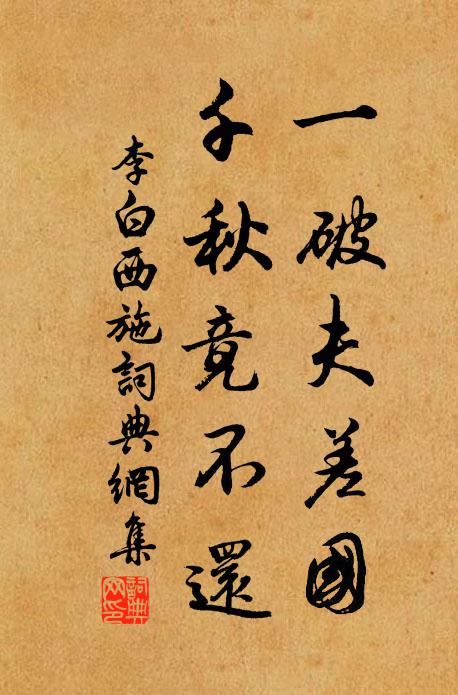 一破夫差國
千秋竟不還
李白西施詞典網集
詞典
网印